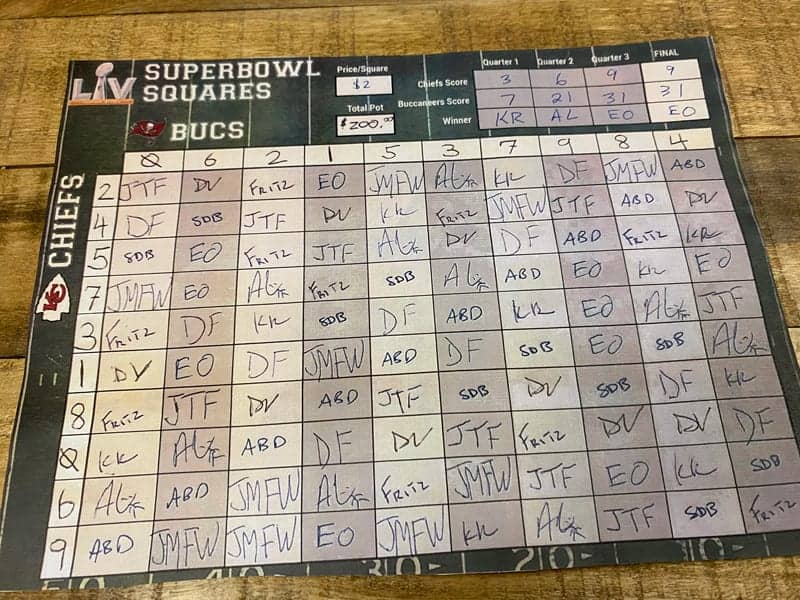 LIV SUPERBOWL SQUARES
Price/Square $2
Total Pot $200.00
Quarter 1 Quarter 2 Quarter 3 FINAL
Chiefs Score 3 6 9 9
Buccaneers Score 7 21 31 31
Winner KR AL EO EO
BUCS
CHIEFS
KC
0 6 2 1 5 3 7 9 8 4
2 JTF DV FRITZ EO JMFW AL KR DF JMFW ABD
4 DF SDB JTF DV KR FRITZ JMFW JTF ABD DV
5 SDB EO FRITZ JTF AL DV DF ABD FRITZ KR
7 JMFW EO AL FRITZ SDB AL ABD EO KR EO
3 FRITZ DF KR SDB DF ABD KR EO AL JTF
1 DV EO DF JMFW ABD DF SDB EO SDB AL
8 FRITZ JTF DV ABD JTF SDB DV SDB DF KR
0 KR AL ABD DF DV JTF FRITZ DV DV DF
6 AL ABD JMFW AL FRITZ JMFW JTF EO KR SDB
9 ABD JMFW JMFW EO JMFW KR AL JTF SDB FRITZ